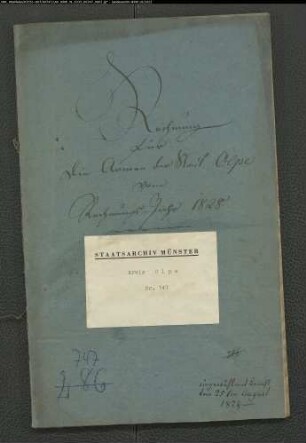 Rechnung
über
die Armen der Stadt Olpe
vom
Rechnungs-Jahr 1828
STAATSARCHIV MÜNSTER
Kreis Olpe
Nr. 747
747
L 86
den 25ten August
1829